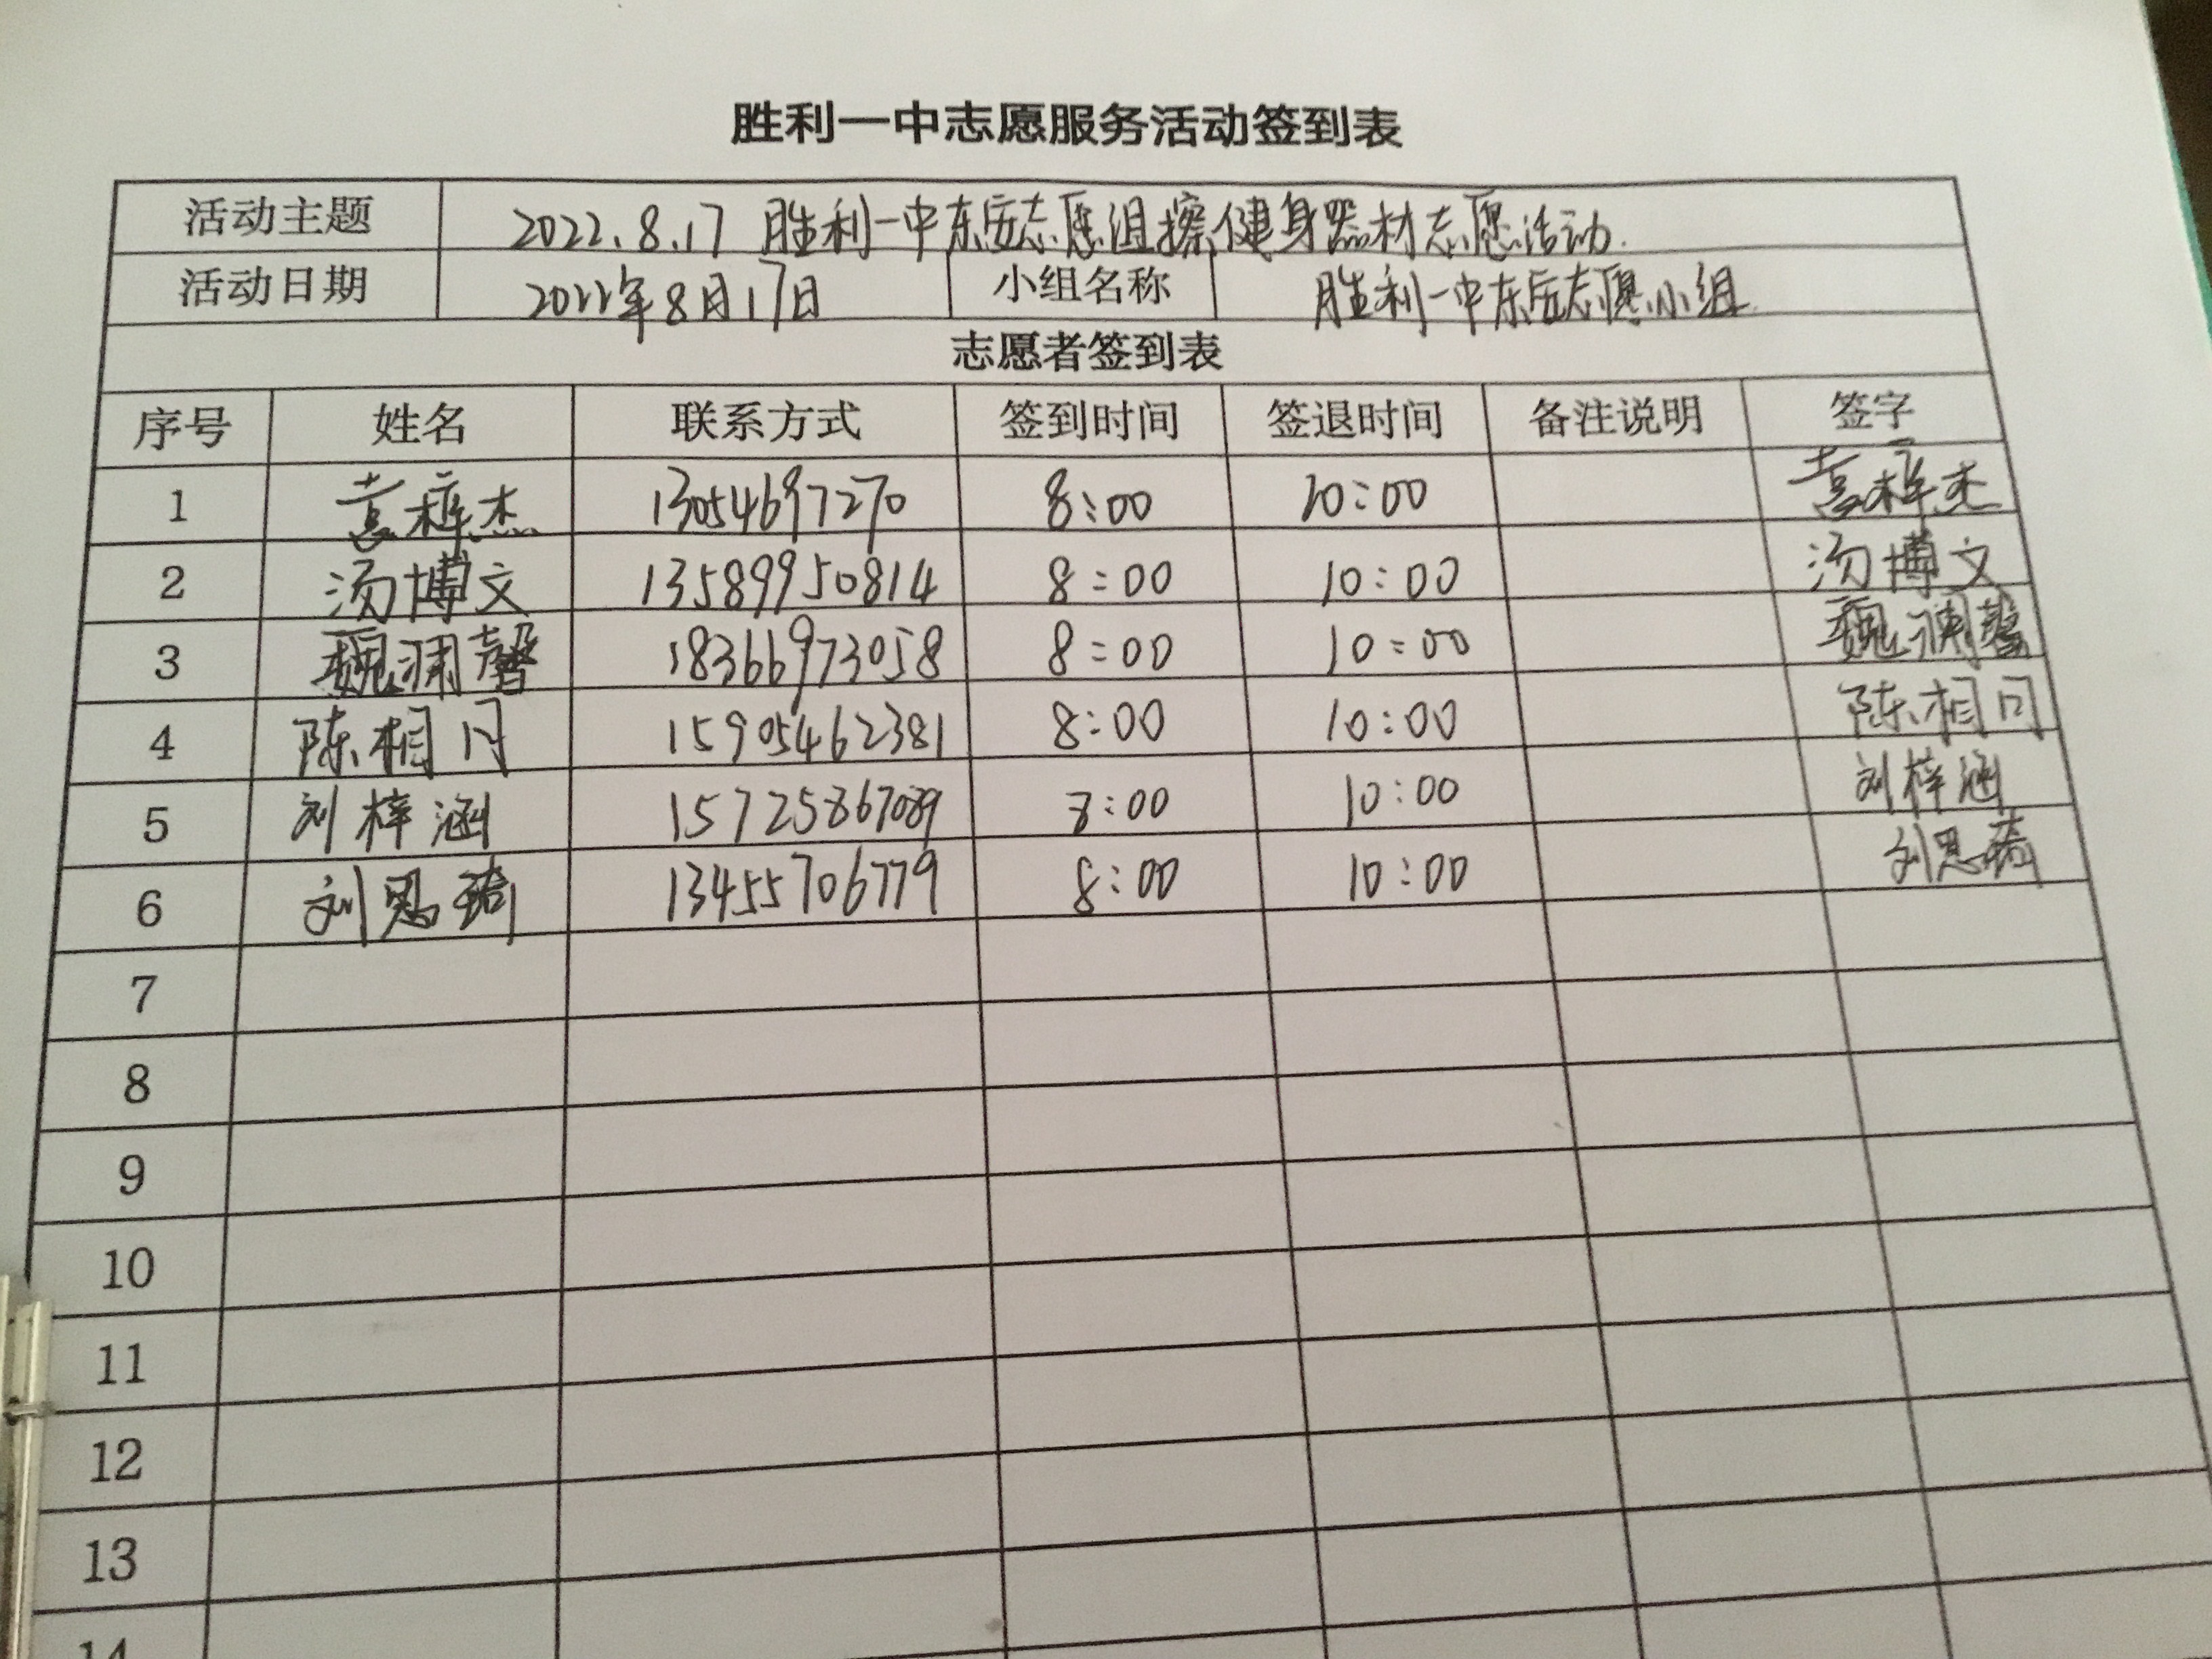 胜利一中志愿服务活动签到表
活动主题 2022.8.17 胜利一中东岳志愿组擦健身器材志愿活动.
活动日期 2022年8月17日 小组名称 胜利一中东岳志愿小组
志愿者签到表
序号 姓名 联系方式 签到时间 签退时间 备注说明 签字
1 梓杰 13054697270 8:00 10:00 梓杰
2 汤博文 13589950814 8:00 10:00 汤博文
3 魏渊馨 18366973058 8:00 10:00 魏渊馨
4 陈相闩 15905462381 8:00 10:00 陈相闩
5 刘梓涵 15725867089 8:00 10:00 刘梓涵
6 刘思琦 13455706779 8:00 10:00 刘思琦
7
8
9
10
11
12
13
14